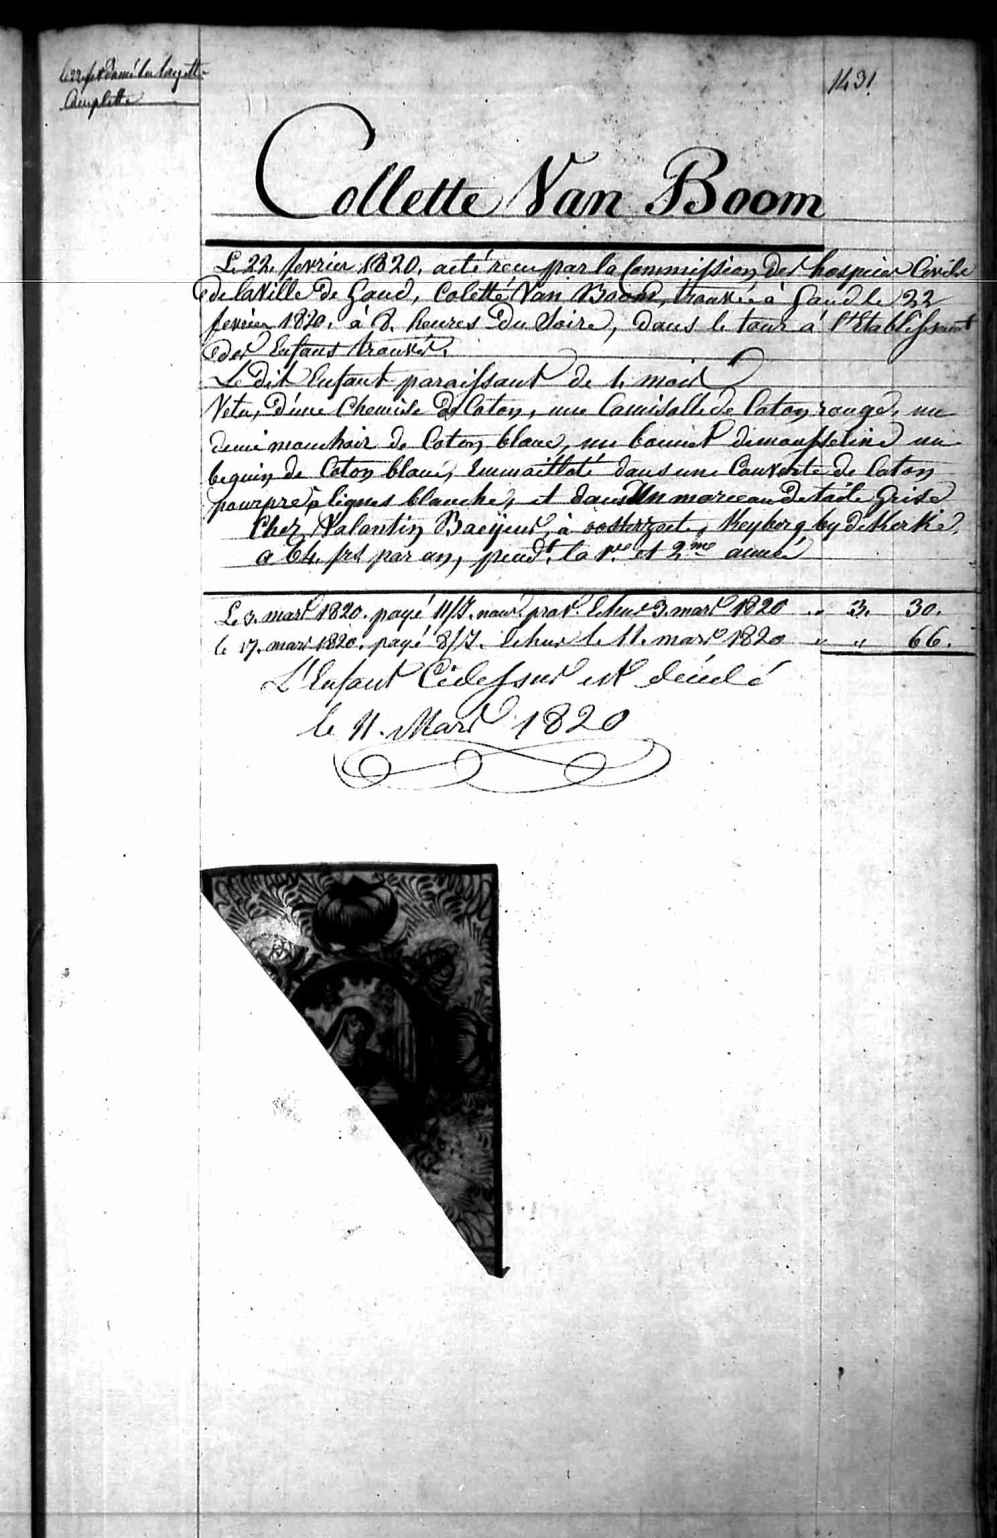 le 22 fev donné la layette
Complette
1431
Collette Van Boom
Le 22. fevrier 1820. a eté recu par la Commission des hospices Civils
de la Ville de Gand, Colette Van Boom, trouvée à Gand le 22
fevrier 1820. à 8. heures du Soire, dans le tour à l'Etablissement
des Enfans trouvés.
Le dit Enfant paraissant de 1. mois
Vetu, d'une Chemise de Coton, une Camisolle de Coton rouge, un
demi mouchoir de Coton blanc, un bonnet de mousseline un
beguin de Coton blanc, Emmailloté dans une Couverte de Coton
pourpre à lignes blanche, et dans Un morceau de toile Grise
Chez Valantin Baeyens, à oosterzeele, Meyberg by de Kerke
a 64. frs par an, pend.t la 1.re et 2.me année
Le 3. mars 1820. payé 11/J. nour. prov. Echus 3. mars 1820 " 3. 30.
le 17. mars 1820. payé 8/J. Echus le 11. mars 1820 " " 66.
L'Enfant Cidessus est décédé
le 11. Mars 1820